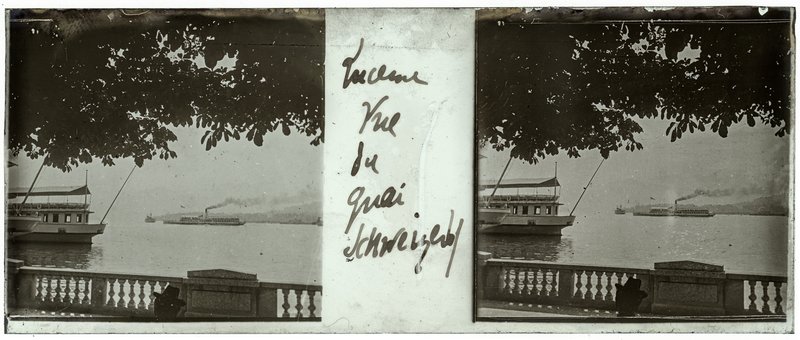 Lucerne
Vue
du
quai
Schweizerhof